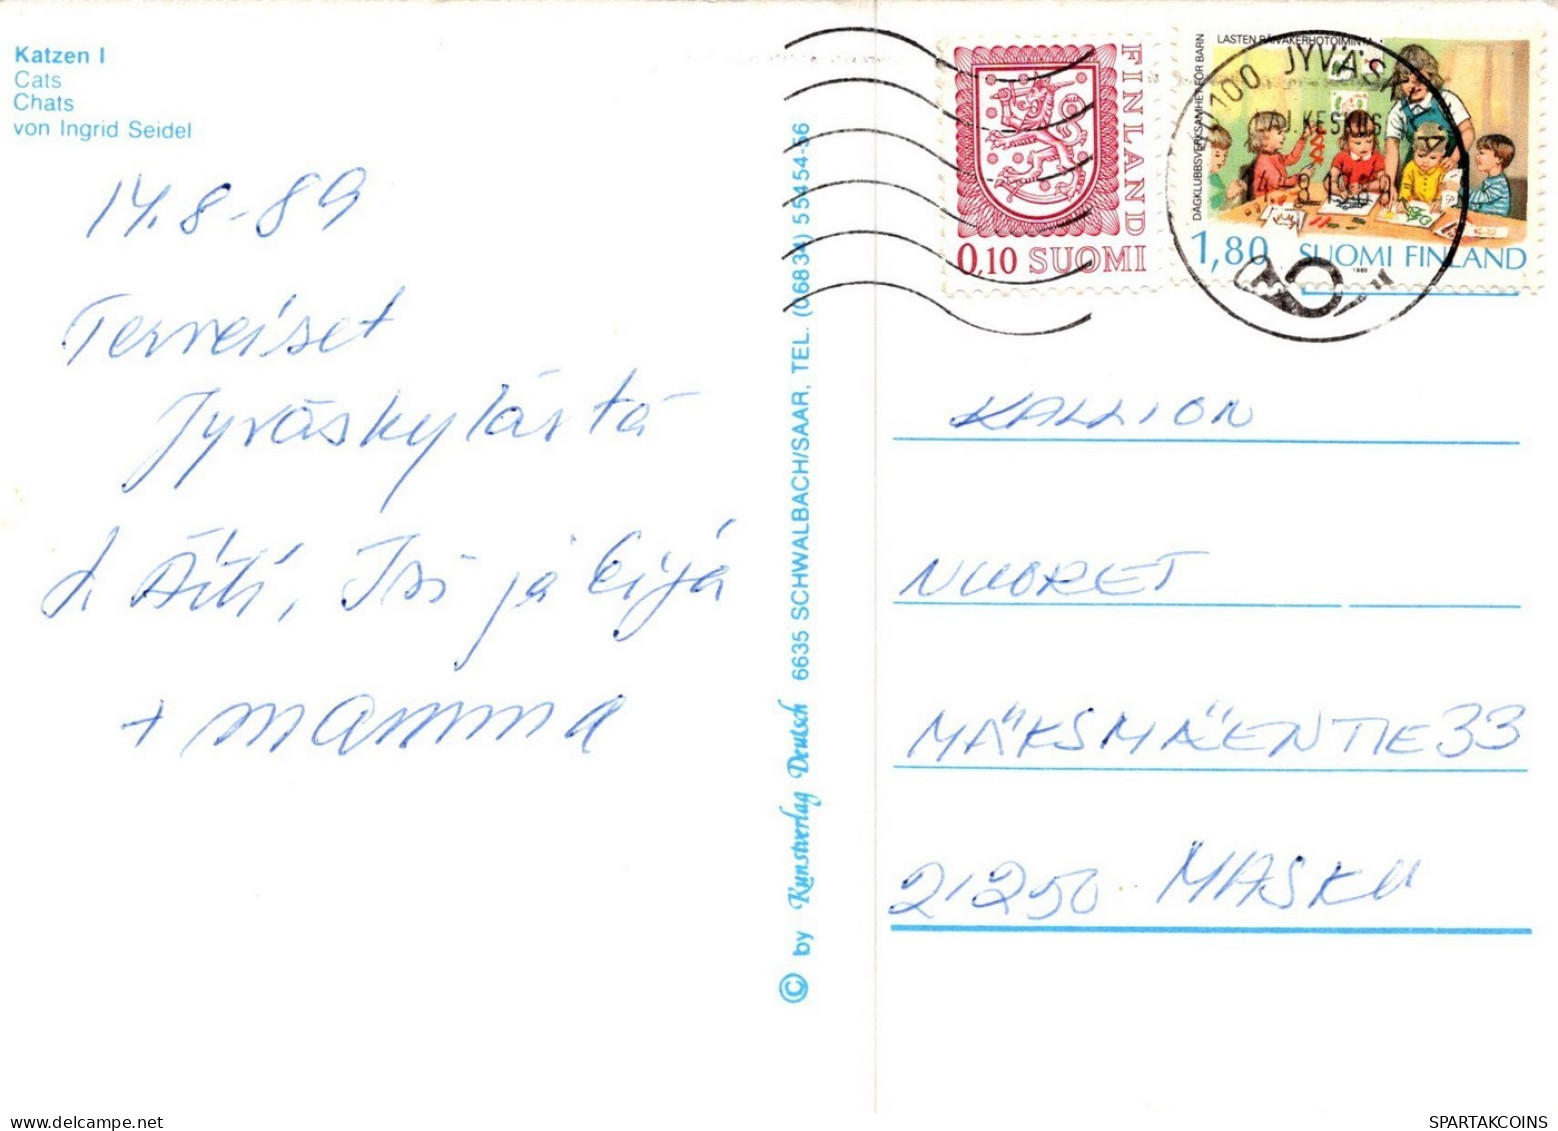 Katzen I
Cats
Chats
von Ingrid Seidel
14.8-89
Terveiset
Jyväskylästä
Äiti, Isi ja Eija
+ mamma
© by Kunstverlag Deutsch 6635 SCHWALBACH/SAAR, TEL. (06834) 55454-56
FINLAND
0,10 SUOMI
LASTEN PÄIVÄKERHOTOIMINTA
DAGKLUBBSVERKSAMHET FÖR BARN
1,80 SUOMI FINLAND
1988
40100 JYVÄSKYLÄ
LAJ.KESKUS
14.-8.1989
KALLION
NUORET
MÄKSMÄENTIE 33
21250 MASKU
SPARTAKCOINS